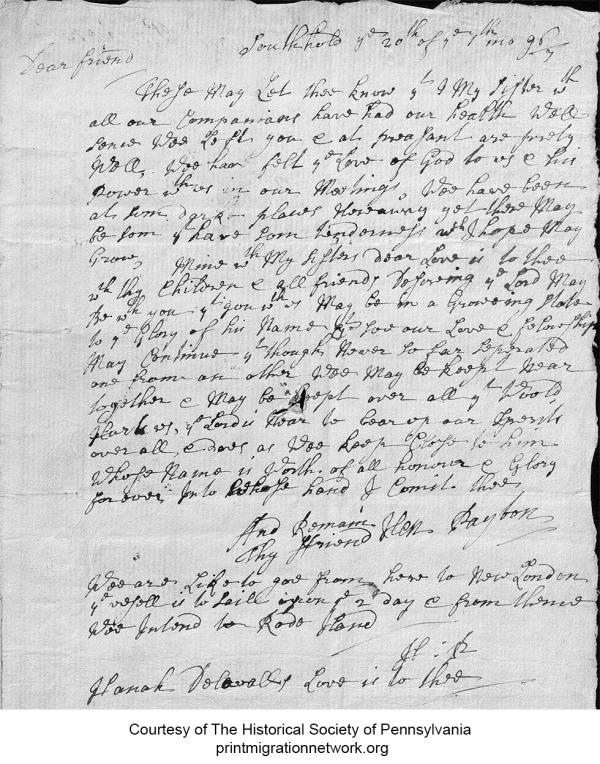 Southhold ye 20th of ye 7th mo 96/7
Dear friend
These May Let thee know yt I & My Sister wth
all our Companians have had our health Well
sence Wee Left you & at preasant are prety
Well. Wee have felt ye Love of God to us & his
Power wth us in our Meetings Wee have been
at som darke places Howaway yet there May
be som yt have som tenderness wch I hope May
Grow
Mine wth My Sisters dear Love is to thee
wth thy Children & all friends Desereing ye Lord May
Be wth you yt you wth us May be in a Groweing State
to ye Glory of his Name & soe our Love & felowship
May Continue yt though Never so far seperated
one from an other Wee May be keept Near
together & May be keept over all yt Woold
Hurt us, ye Lord is Near to bear up our Sperits
over all, & does as Wee keep Close to him
Whose Name is Worth of all honour & Glory
forever Into Whose hand I Comit thee
And Remain
Thy ffriend Elen
We are Like to goe from here to New London
ye vesell is to saill upon ye 2 day & from thence
Wee Intend to Rode Iland
Hanah Delavalls Love is to thee
Courtesy of The Historical Society of Pennsylvania
printmigrationnetwork.org